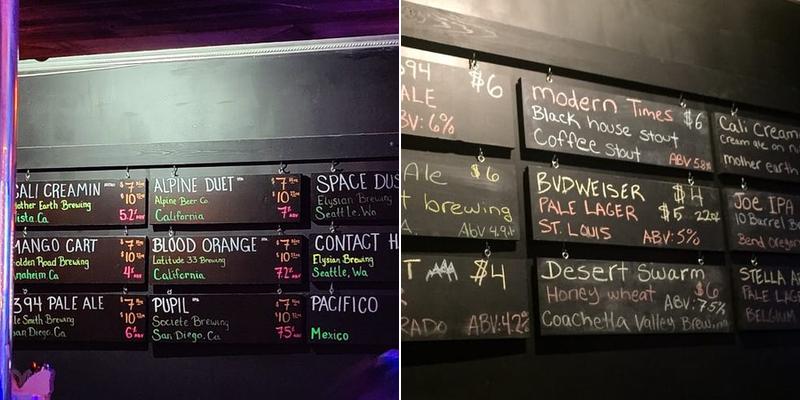 CALI CREAMIN
Mother Earth Brewing
Vista, Ca
$7
$10
5.2%
ALPINE DUET
Alpine Beer Co.
California
$7
$10
7%
SPACE DUS
Elysian Brewing
Seattle, Wa
MANGO CART
Golden Road Brewing
Anaheim Ca
$7
$10
4%
BLOOD ORANGE
Latitude 33 Brewing
California
$7
$10
7.2%
CONTACT H
Elysian Brewing
Seattle, Wa
394 PALE ALE
Ale Smith Brewing
San Diego, Ca
$7
$10
6%
PUPIL
Societe Brewing
San Diego, Ca
$7
$10
7.5%
PACIFICO
Mexico
394 $6
ALE
ABV: 6%
modern Times $6
Black house stout
Coffee stout ABV 5.8%
Cali Cream
Cream ale on n
mother earth
Ale $6
brewing
ABV 4.9%
BUDWEISER $4
PALE LAGER $5 22oz
ST. LOUIS ABV: 5%
Joe IPA
10 Barrel B
Bend Oregon
T $4
RADO ABV: 4.2%
Desert Swarm
Honey wheat $6
ABV: 7.5%
Coachella Valley Brewing
STELLA A
PALE LAG
BELGIUM